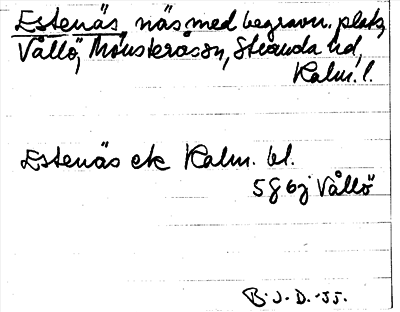 Estenäs, näs med begravn. plats,
Vållö, Mönsterås sn, Stranda hd,
Kalm. l.
Estenäs ek Kalm. bl.
5 G 6j Vållö
B. J. D. -55.